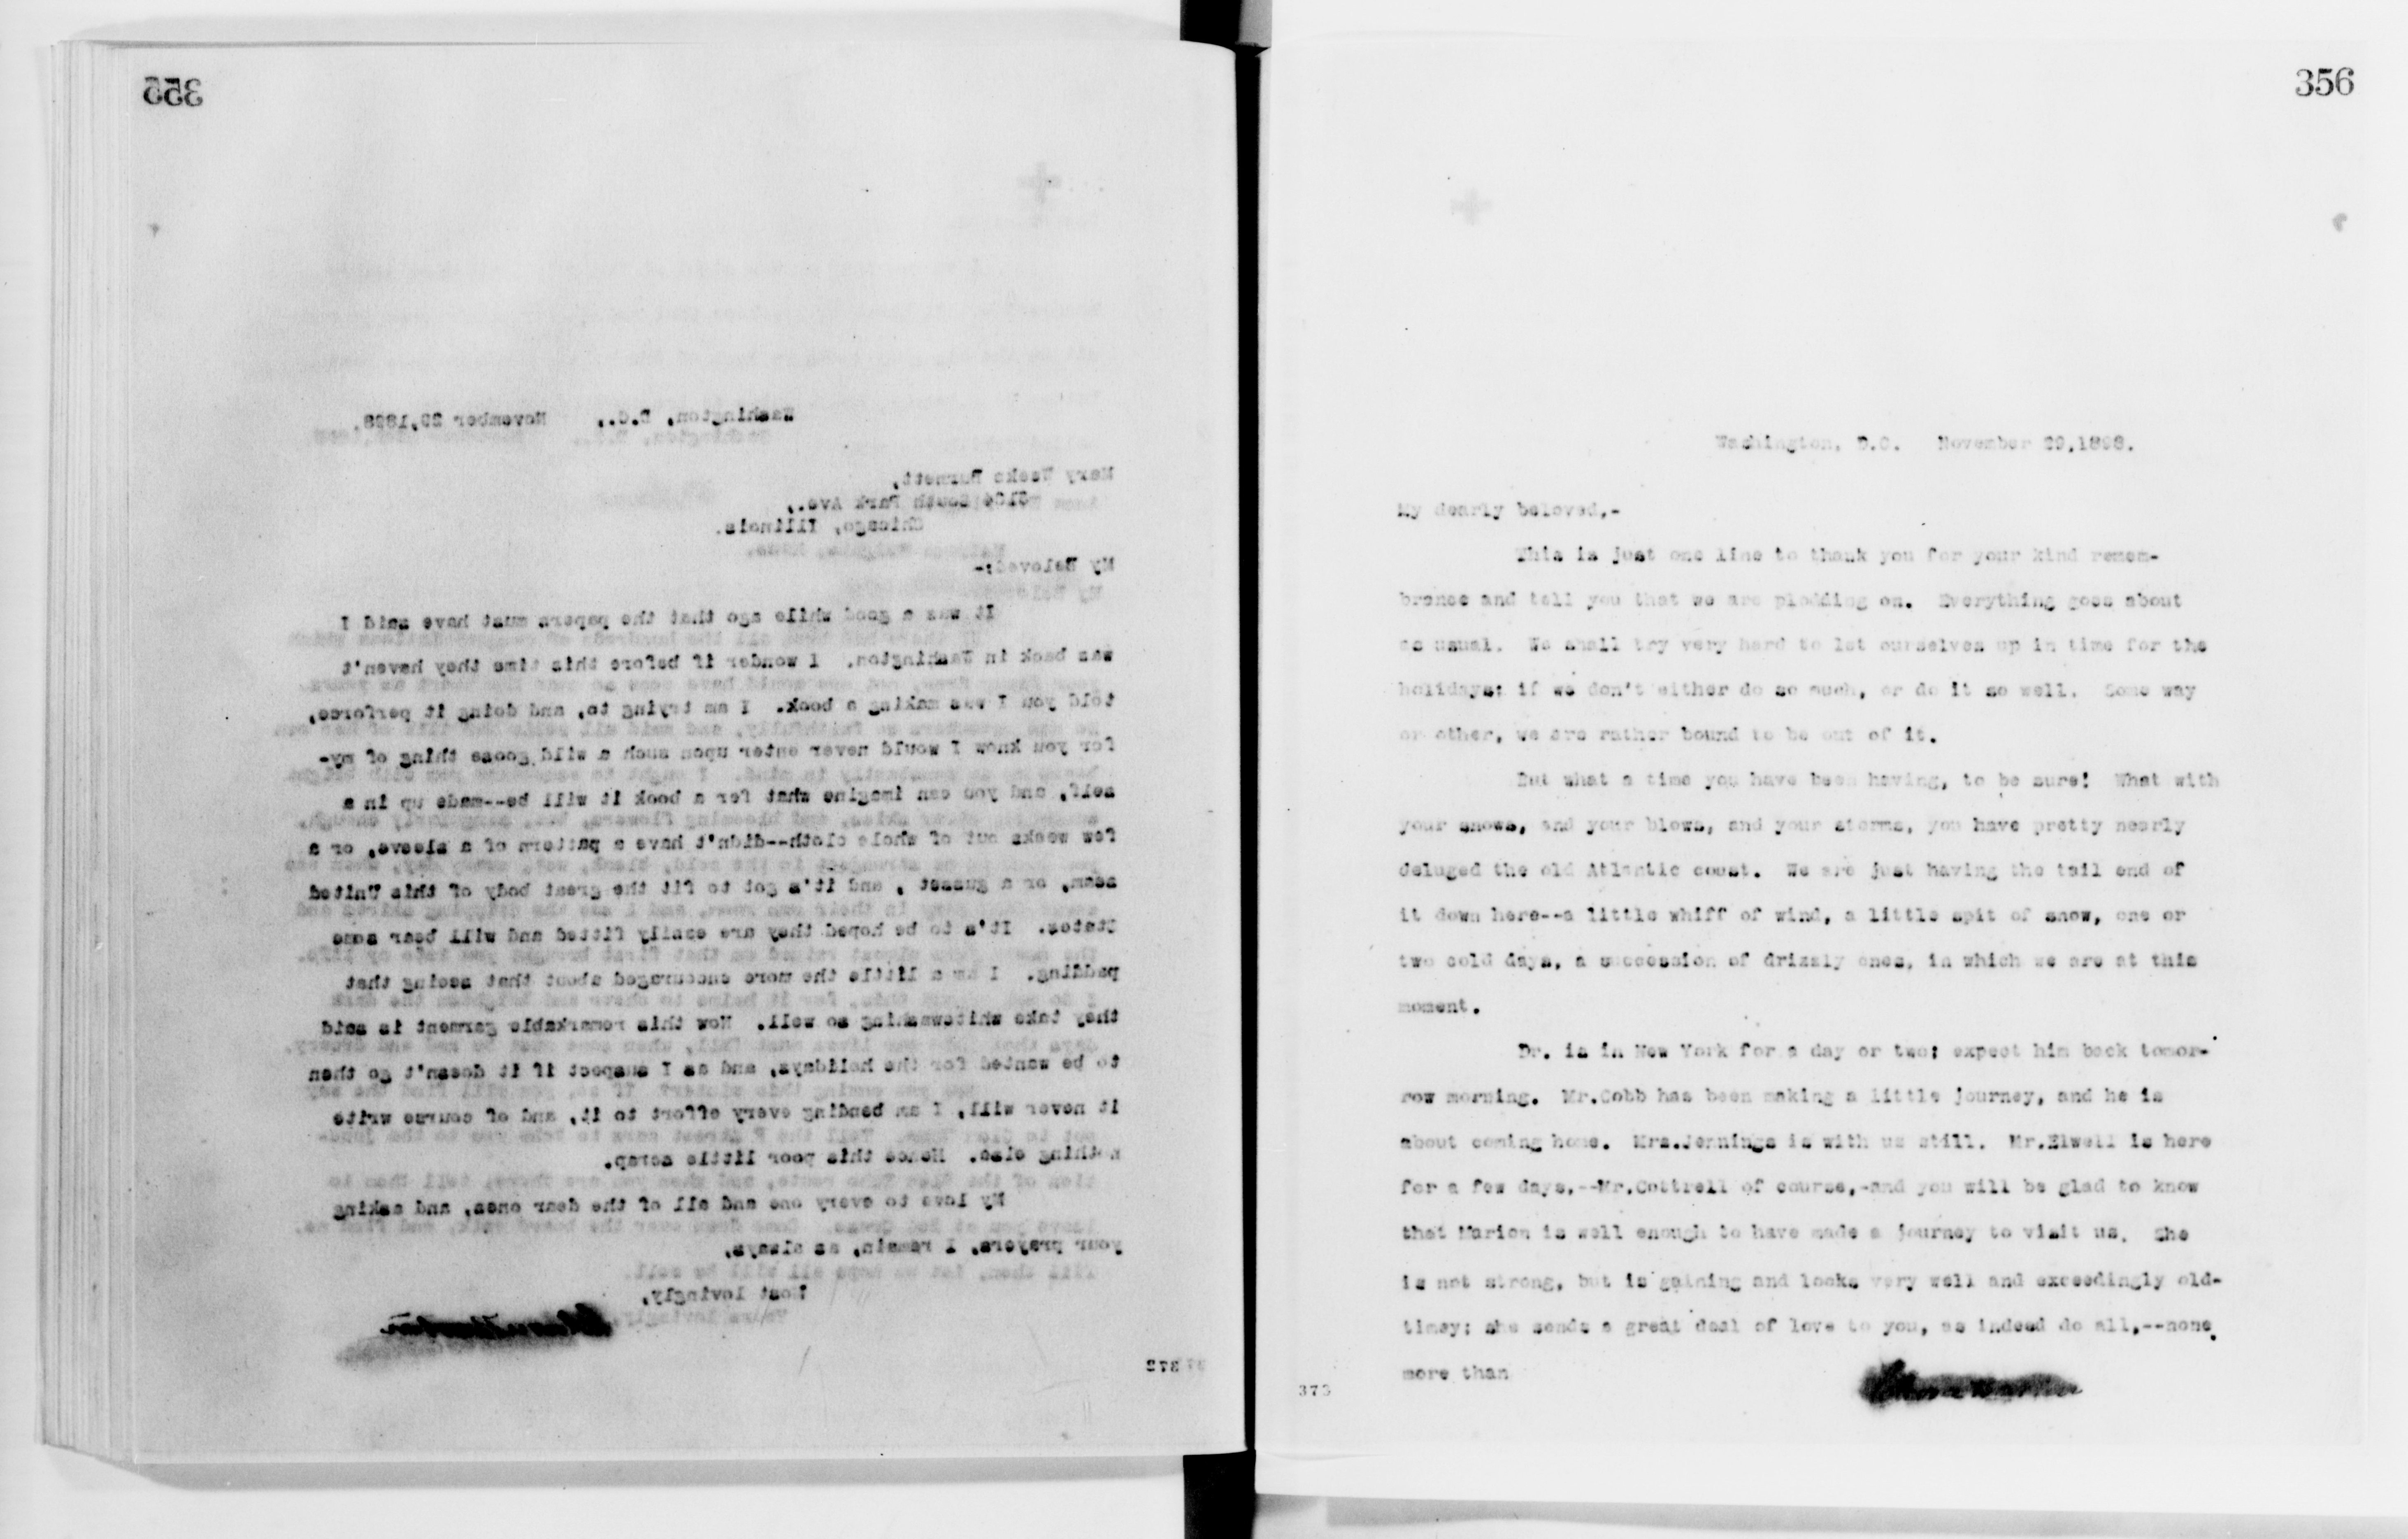 355
Washington, D.C., November 29,1898.
Mary Weeks Burnett,
South Park Ave.,
Chicago, Illinois.
My Beloved:-
It was a good while ago that the papers must have said I
was back in Washington. I wonder if before this time they haven't
told you I was making a book. I am trying to, and doing it perforce,
for you know I would never enter upon such a wild goose thing of my-
self, and you can imagine what fer a book it will be--made up in a
few weeks out of whole cloth--didn't have a pattern of a sleeve, or a
seam, or a gusset , and it's got to fit the great body of this United
States. It's to be hoped they are easily fitted and will bear some
padding. I am a little the more encouraged about that seeing that
they take whitewashing so well. Now this remarkable garment is said
to be wanted for the holidays, and as I suspect if it doesn't go then
it never will, I am bending every effort to it, and of course write
nothing else. Hence this poor little scrap.
My love to every one and all of the dear ones, and asking
your prayers, I remain, as always,
Most lovingly,
Clara Barton
372
356
Washington, D.C. November 29,1898.
My dearly beloved,-
This is just one line to thank you for your kind remem-
brance and tell you that we are plodding on. Everything goes about
as usual. We shall try very hard to let ourselves up in time for the
holidays; if we don't either do so much, or do it so well. Some way
or other, we are rather bound to be out of it.
But what a time you have been having, to be sure! What with
your snows, and your blows, and your storms, you have pretty nearly
deluged the old Atlantic coast. We are just having the tail end of
it down here--a little whiff of wind, a little spit of snow, one or
two cold days, a succession of drizzly ones, in which we are at this
moment.
Dr. is in New York for a day or two; expect him back tomor-
row morning. Mr.Cobb has been making a little journey, and he is
about coming home. Mrs.Jennings is with us still. Mr.Elwell is here
for a few days,--Mr.Cottrell of course,-and you will be glad to know
that Marion is well enough to have made a journey to visit us. She
is not strong, but is gaining and looks very well and exceedingly old-
timey; she sends a great deal of love to you, as indeed do all,--none
more than
Clara Barton
373